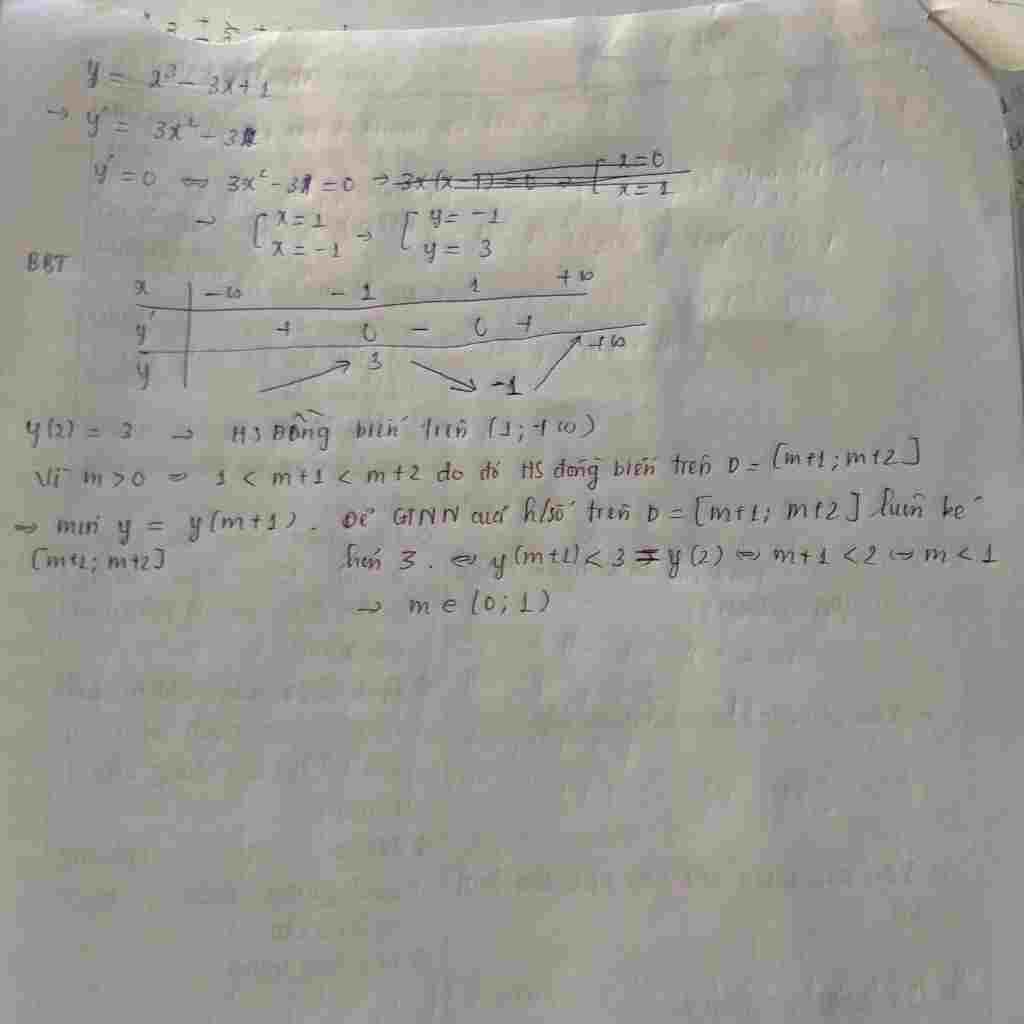 y = x³ - 3x + 1
→ y' = 3x² - 3
y' = 0 ⇔ 3x² - 3 = 0 → 3x(x-1) = 0 → [ x = 0
x = 1
→ [ x = 1 → [ y = -1
x = -1 y = 3
BBT
x -∞ -1 1 +∞
y' + 0 - 0 +
y 3 -1 +∞
y(2) = 3 → HS Đồng biến trên (1; +∞)
Vì m > 0 ⇒ 1 < m+1 < m+2 do đó HS đồng biến trên D = [m+1; m+2]
⇒ min y = y(m+1). Để GTNN của h/số trên D = [m+1; m+2] luôn bé
[m+1; m+2] hơn 3. ⇔ y(m+1) < 3 = y(2) ⇔ m+1 < 2 ⇔ m < 1
→ m ∈ (0; 1)